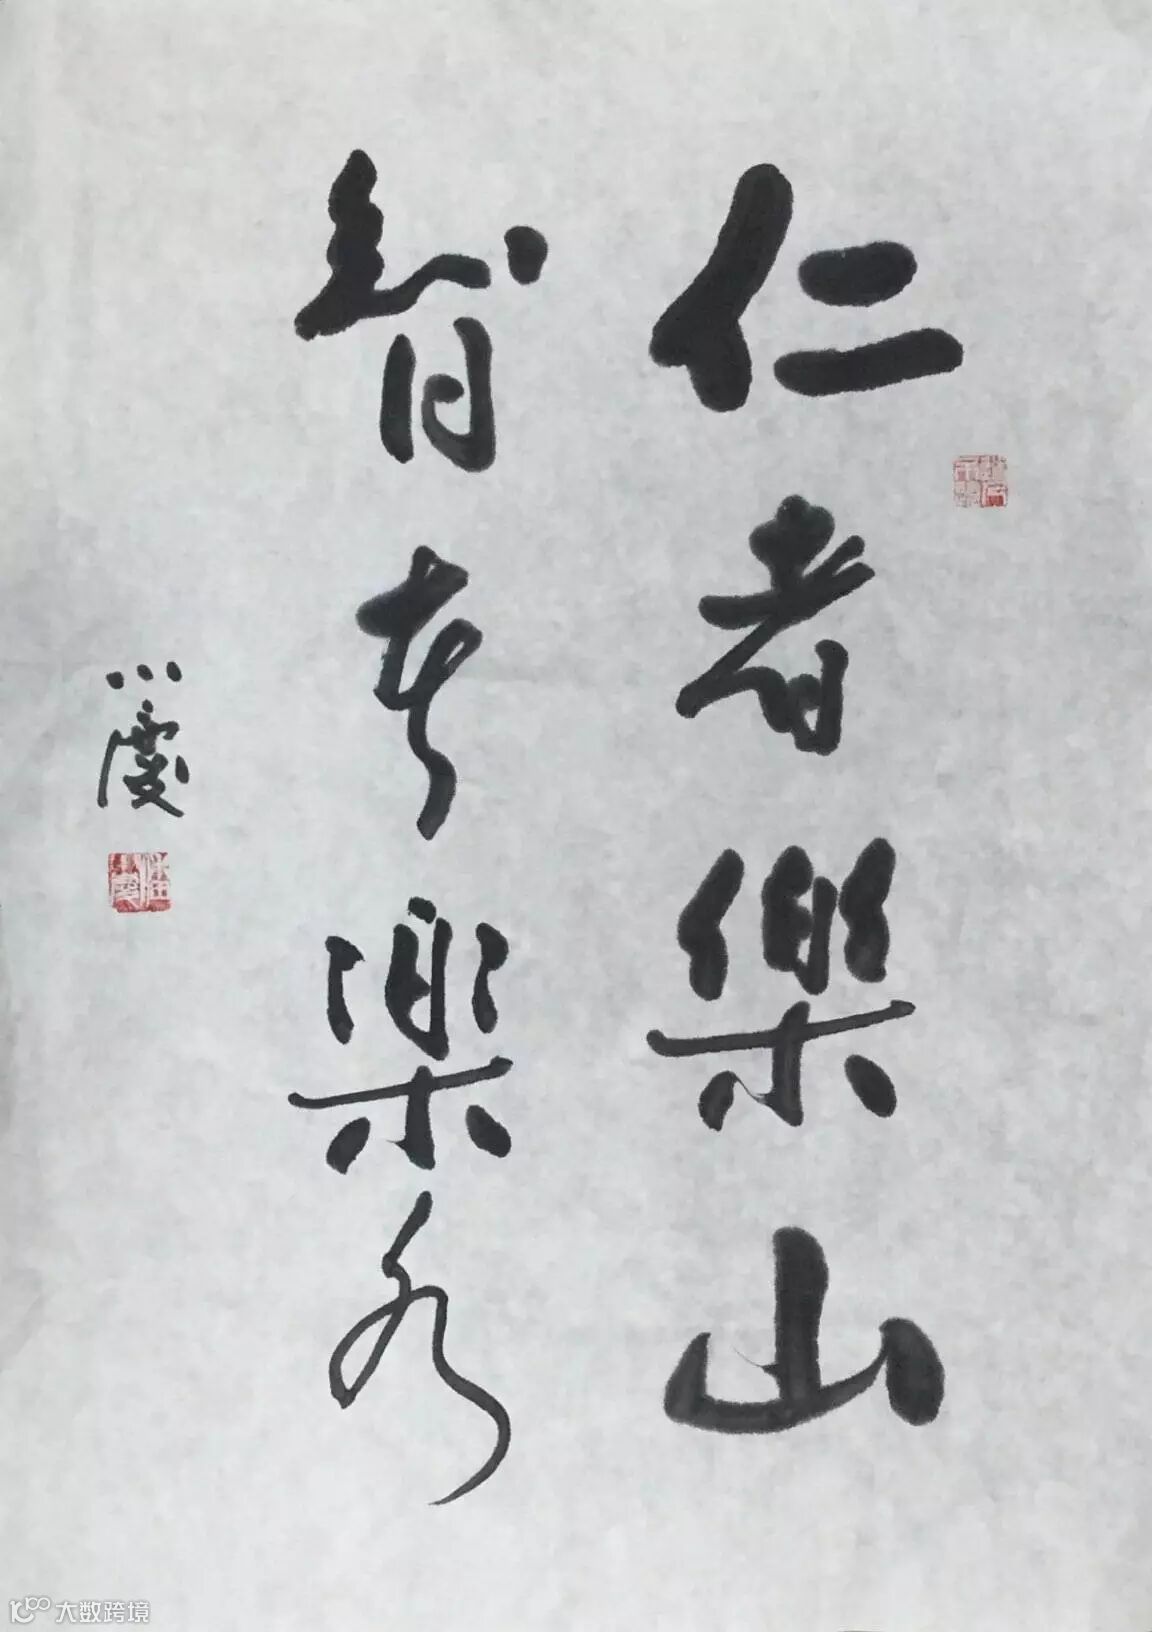 仁者樂山
智者樂水
小慶
大数跨境